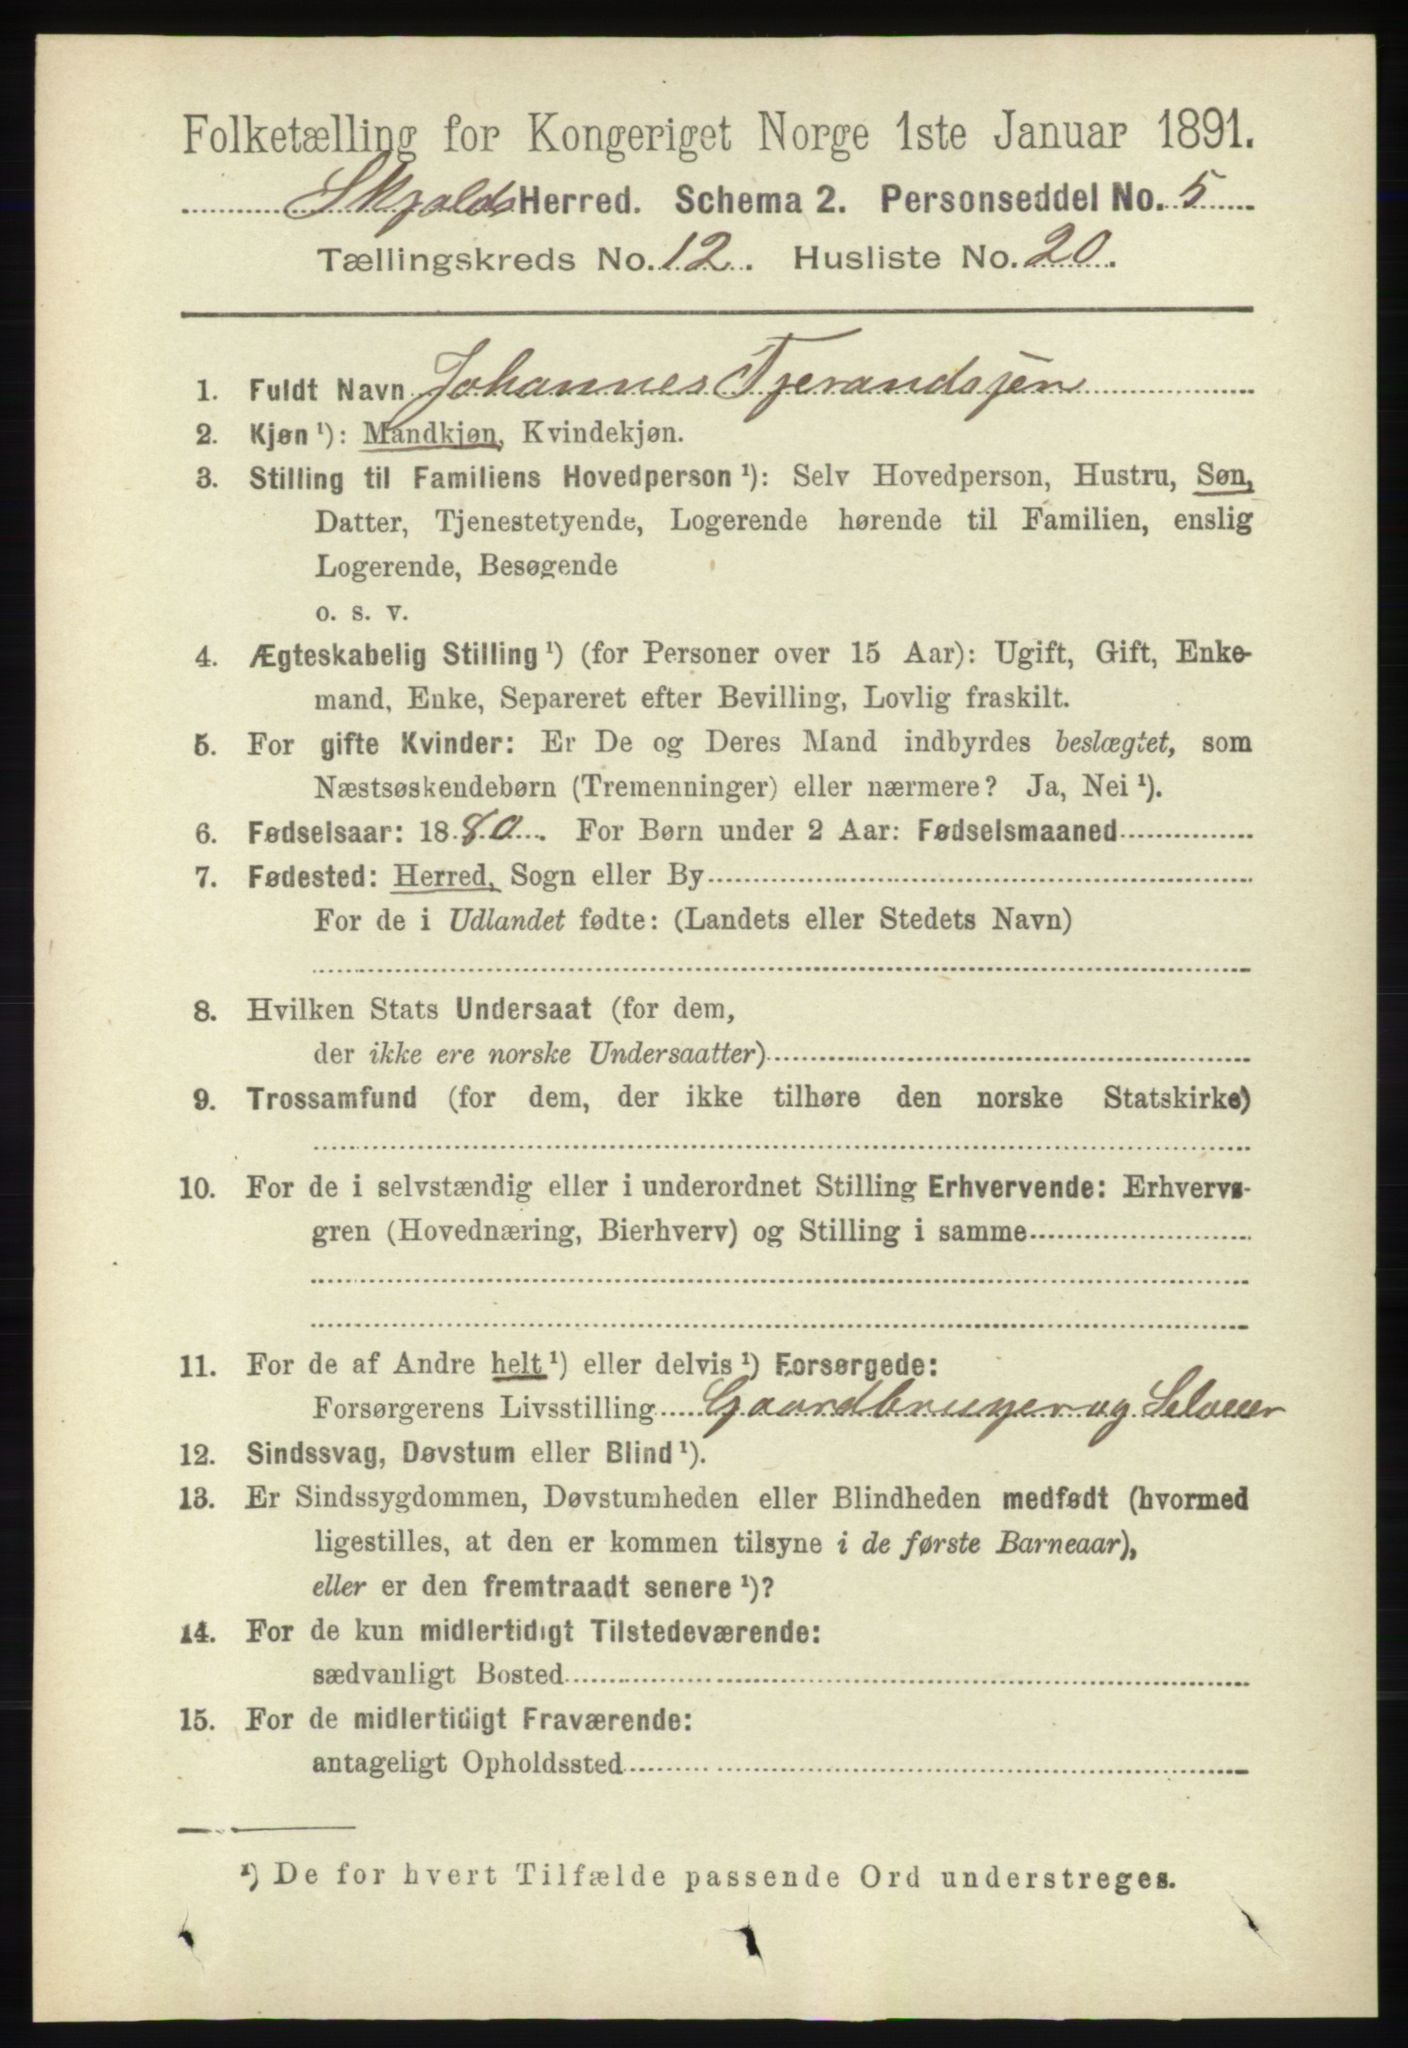 Folketælling for Kongeriget Norge 1ste Januar 1891.
Skjolds Herred. Schema 2. Personseddel No. 5
Tællingskreds No. 12. Husliste No. 20.
1. Fuldt Navn Johannes Tjerandsjen
2. Kjøn ¹): Mandkjøn, Kvindekjøn.
3. Stilling til Familiens Hovedperson ¹): Selv Hovedperson, Hustru, Søn,
Datter, Tjenestetyende, Logerende hørende til Familien, enslig
Logerende, Besøgende
o. s. v.
4. Ægteskabelig Stilling ¹) (for Personer over 15 Aar): Ugift, Gift, Enke-
mand, Enke, Separeret efter Bevilling, Lovlig fraskilt.
5. For gifte Kvinder: Er De og Deres Mand indbyrdes beslægtet, som
Næstsøskendebørn (Tremenninger) eller nærmere? Ja, Nei ¹).
6. Fødselsaar: 1880. For Børn under 2 Aar: Fødselsmaaned
7. Fødested: Herred, Sogn eller By
For de i Udlandet fødte: (Landets eller Stedets Navn)
8. Hvilken Stats Undersaat (for dem,
der ikke ere norske Undersaatter)
9. Trossamfund (for dem, der ikke tilhøre den norske Statskirke)
10. For de i selvstændig eller i underordnet Stilling Erhvervende: Erhvervs-
gren (Hovednæring, Bierhverv) og Stilling i samme
11. For de af Andre helt ¹) eller delvis ¹) Forsørgede:
Forsørgerens Livsstilling Gaardbruger og Selveier
12. Sindssvag, Døvstum eller Blind ¹).
13. Er Sindssygdommen, Døvstumheden eller Blindheden medfødt (hvormed
ligestilles, at den er kommen tilsyne i de første Barneaar),
eller er den fremtraadt senere ¹)?
14. For de kun midlertidigt Tilstedeværende:
sædvanligt Bosted
15. For de midlertidigt Fraværende:
antageligt Opholdssted
¹) De for hvert Tilfælde passende Ord understreges.